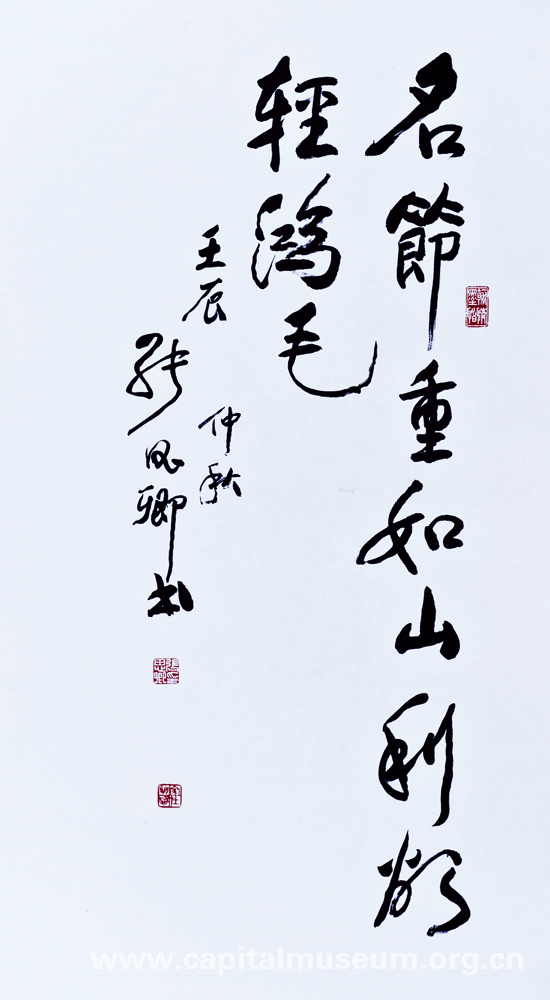 名節重如山利欲
輕鴻毛
壬辰仲秋
张思卿书
www.capitalmuseum.org.cn